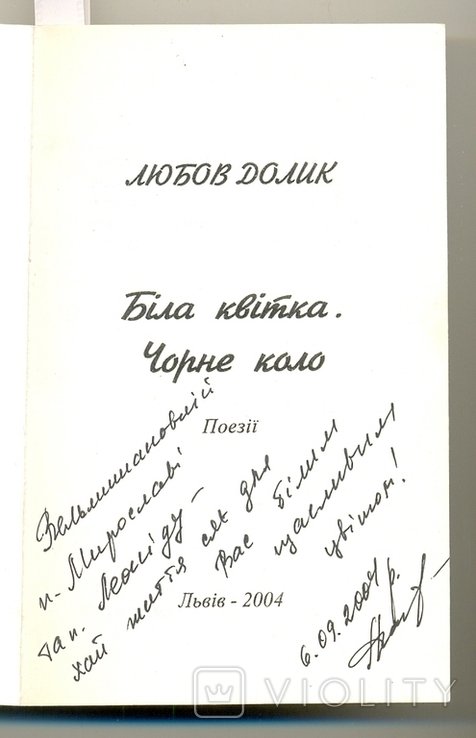 ЛЮБОВ ДОЛИК
Біла квітка.
Чорне коло
Поезії
Вельмишановній
п. Мирославі
та п. Леоніду –
хай життя сяє для
Вас білим
щасливим
цвітом!
Львів - 2004
6.09.2004 р.
VIOLITY